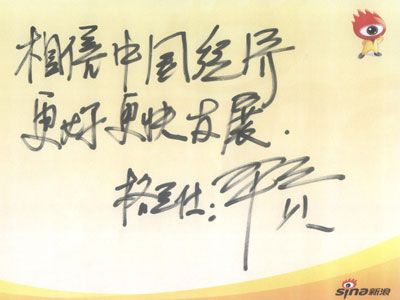 相信中国经济
更好更快发展.
格兰仕:
sina新浪